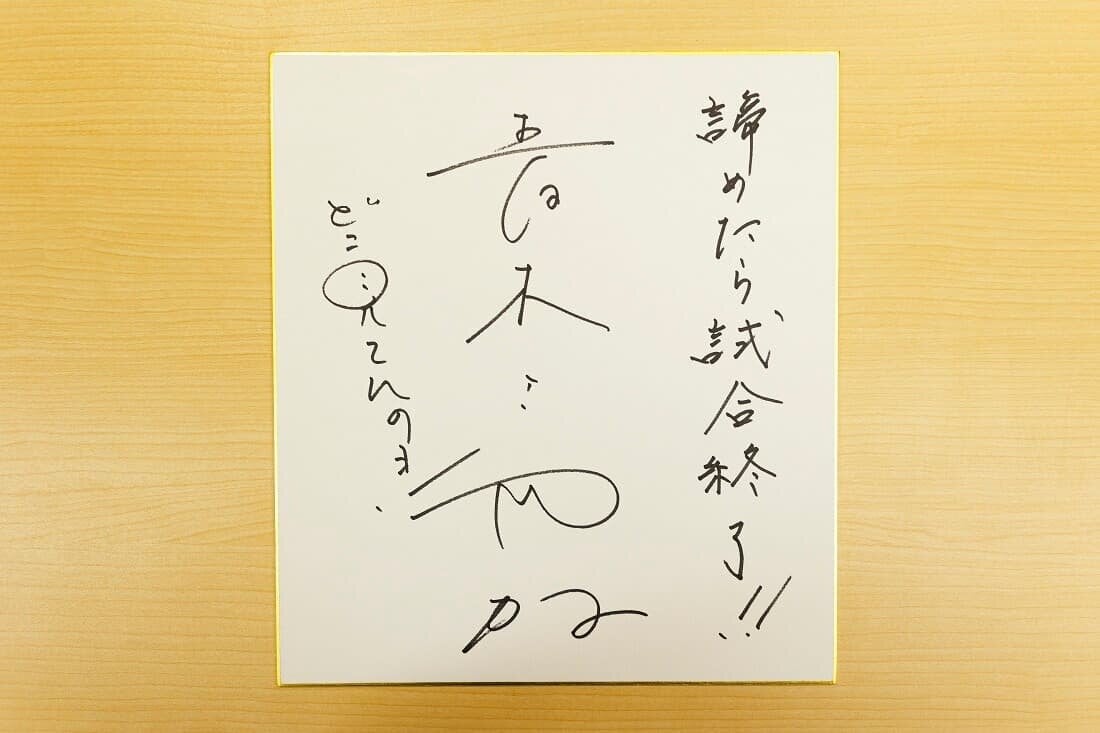 諦めたら試合終了!!
青木
どこ見てんのよ.